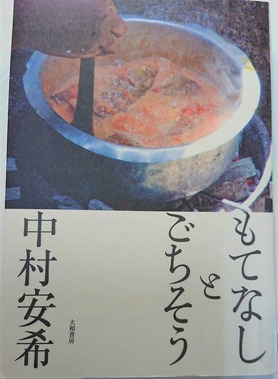 もてなし
と
ごちそう
中村安希
大和書房